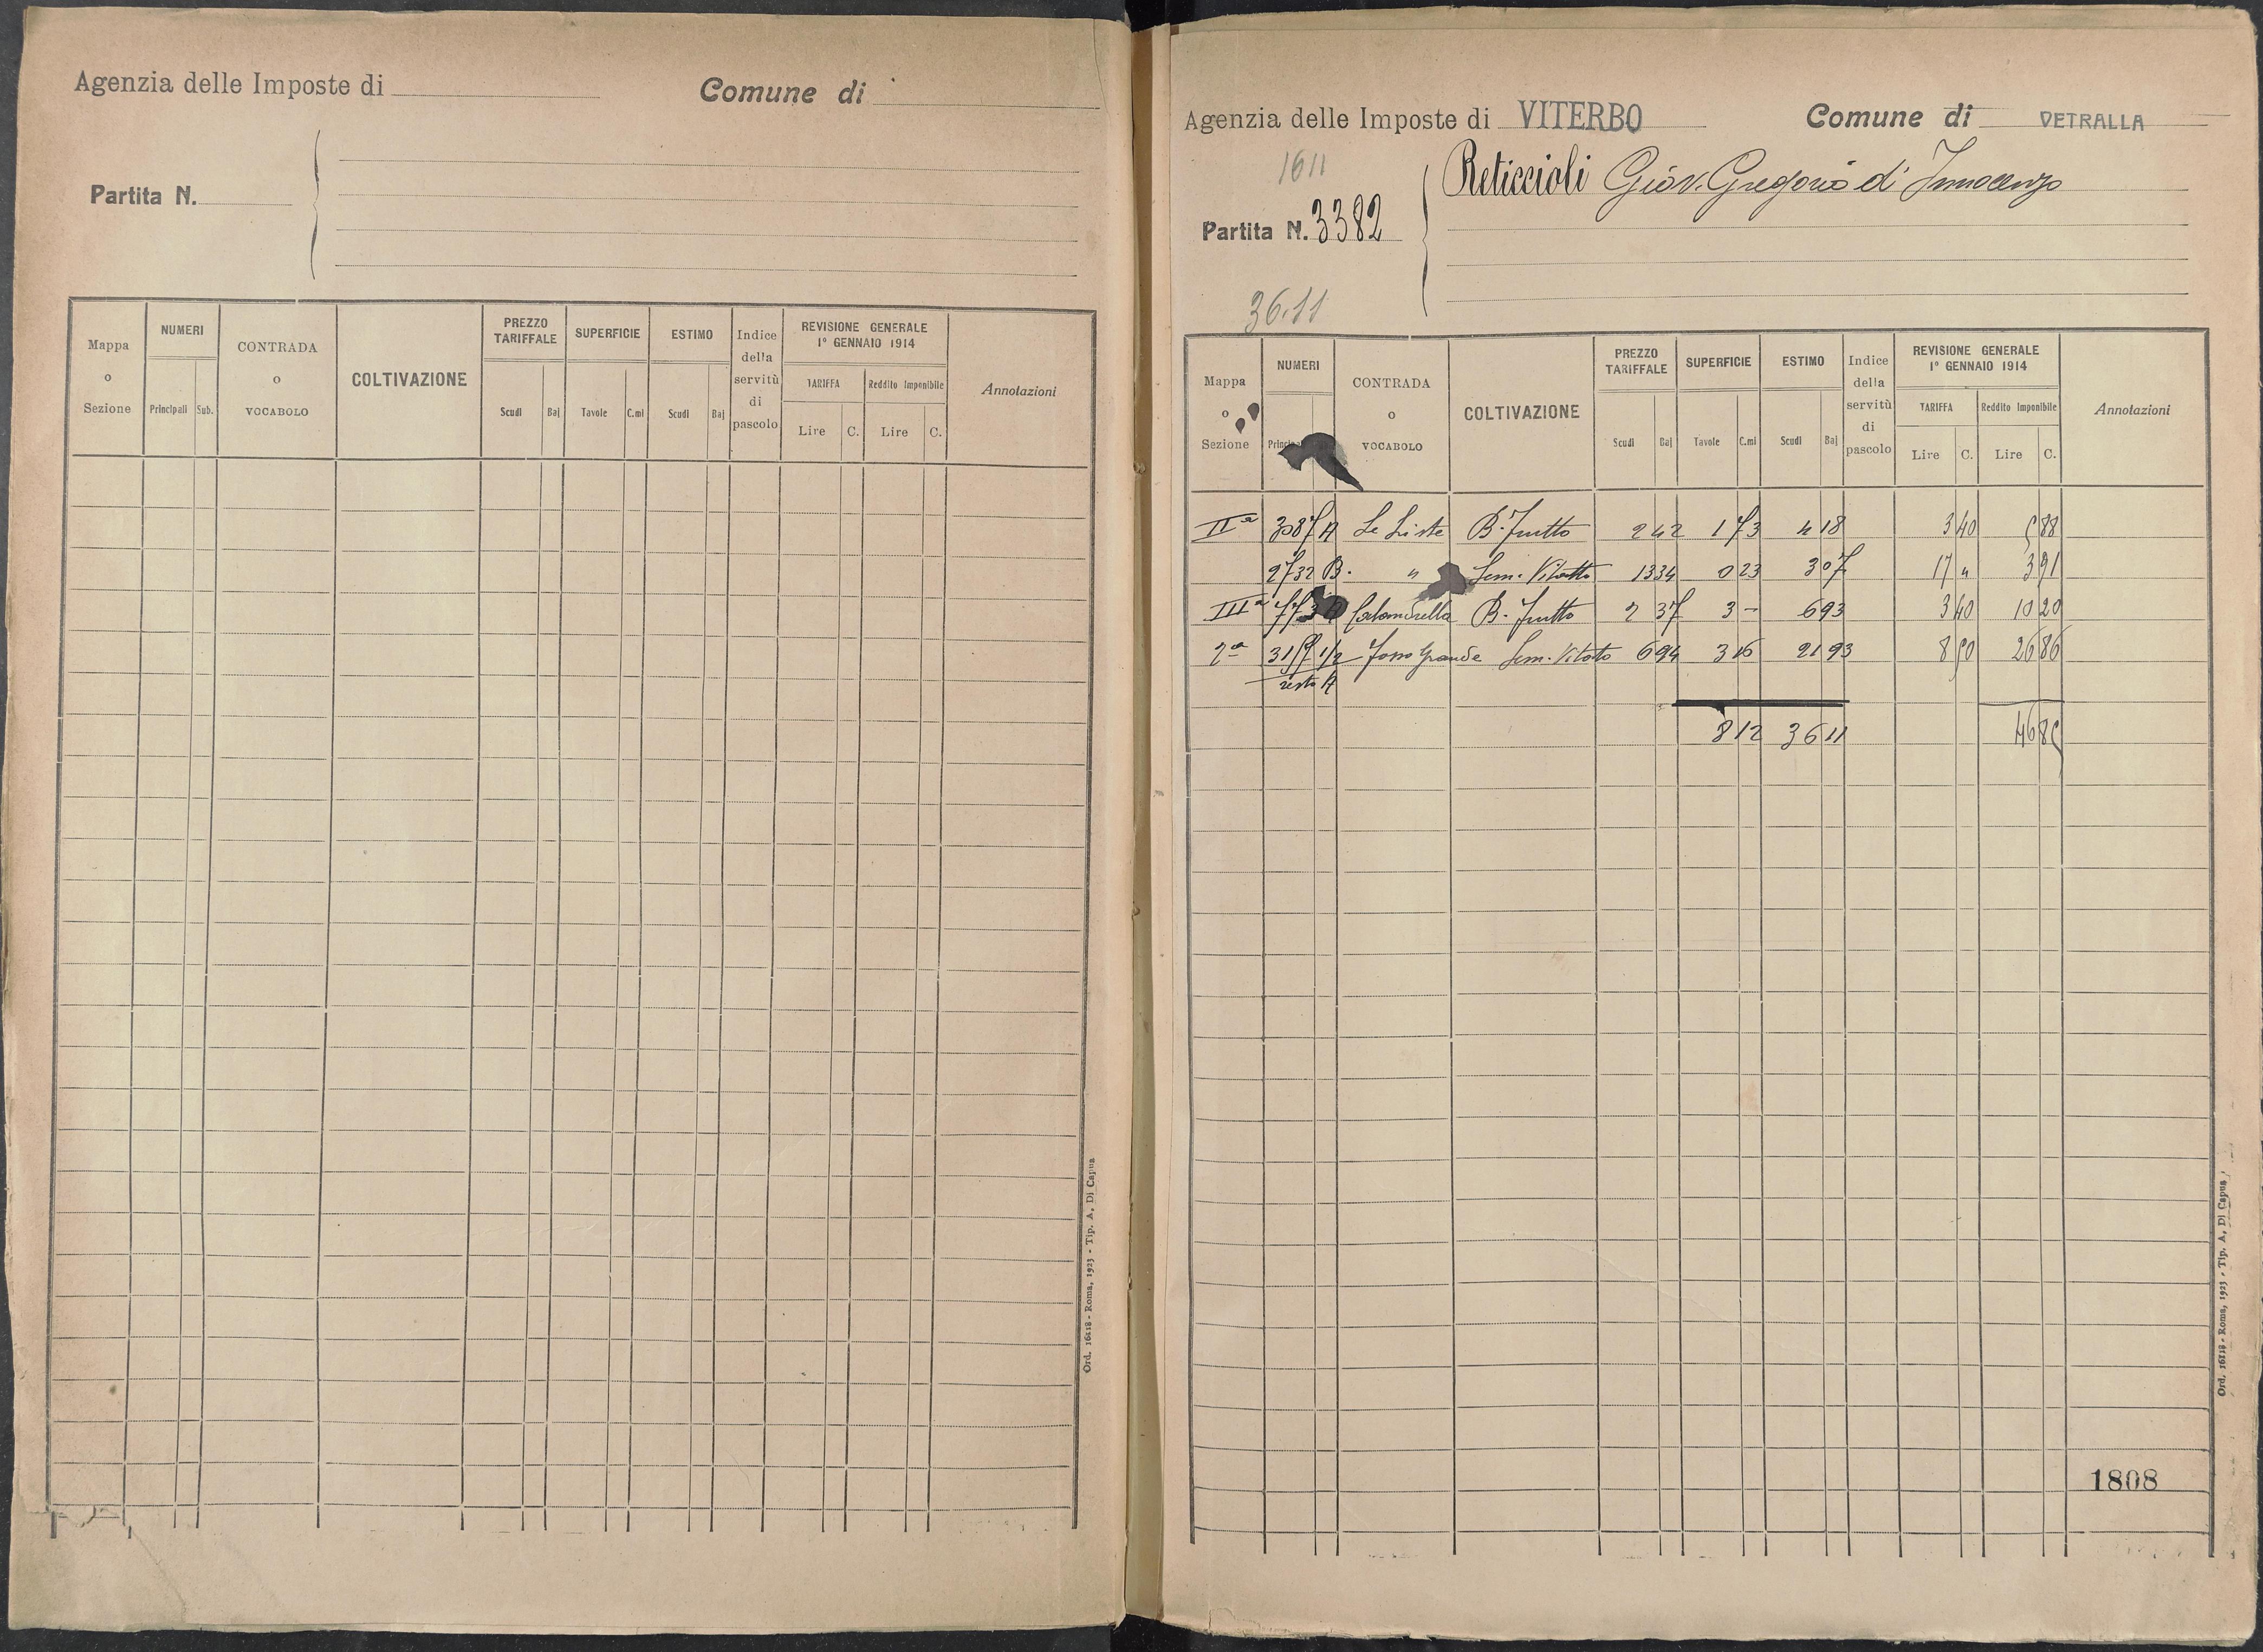 Agenzia delle Imposte di
Comune di
Partita N.
Mappa o Sezione
NUMERI
Principali Sub.
CONTRADA o VOCABOLO
COLTIVAZIONE
PREZZO TARIFFALE
Scudi Baj
SUPERFICIE
Tavole C.mi
ESTIMO
Scudi Baj
Indice della servitù di pascolo
REVISIONE GENERALE
1º GENNAIO 1914
TARIFFA Reddito Imponibile
Lire C. Lire C.
Annotazioni
Ord. 16118 - Roma, 1923 - Tip. A. Di Capua
Agenzia delle Imposte di VITERBO
Comune di VETRALLA
1611
Reticcioli Giov. Gregorio di Innocenzo
Partita N. 3382
36.11
Mappa o Sezione
NUMERI
CONTRADA o VOCABOLO
COLTIVAZIONE
PREZZO TARIFFALE
Scudi Baj
SUPERFICIE
Tavole C.mi
ESTIMO
Scudi Baj
Indice della servitù di pascolo
REVISIONE GENERALE
1º GENNAIO 1914
TARIFFA Reddito Imponibile
Lire C. Lire C.
Annotazioni
IIª 3087 A Le Liste B. Frutto 2 42 1 73 4 18 3 40 5 88
2732 B. " Sem. Vitato 13 34 0 23 3 07 17 " 3 91
IIIª B. Frutto 2 37 3 - 6 93 3 40 10 20
2ª 1/2 Fosso Grande Sem. Vitato 6 94 3 16 21 93 8 50 26 86
resto A
8 12 36 11 46 85
1808
Ord. 16118 - Roma, 1923 - Tip. A. Di Capua